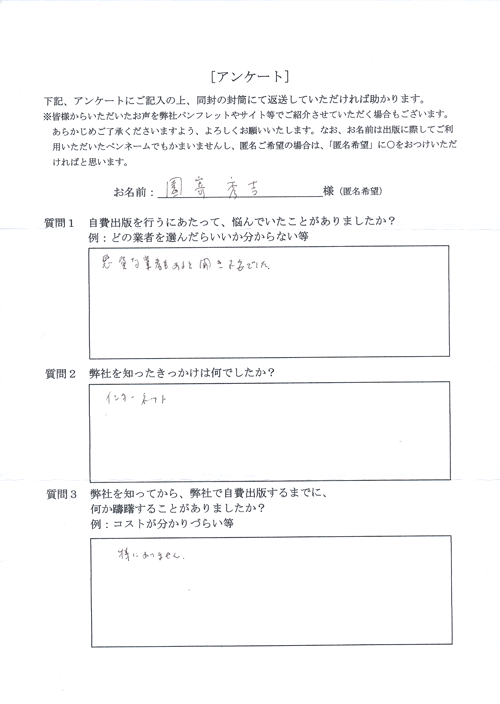 ［アンケート］
下記、アンケートにご記入の上、同封の封筒にて返送していただければ助かります。
※皆様からいただいたお声を弊社パンフレットやサイト等でご紹介させていただく場合もございます。
あらかじめご了承くださいますよう、よろしくお願いいたします。なお、お名前は出版に際してご利
用いただいたペンネームでもかまいませんし、匿名ご希望の場合は、「匿名希望」に○をおつけいただ
ければと思います。
お名前： 園嵜 秀吉 様（匿名希望）
質問１ 自費出版を行うにあたって、悩んでいたことがありましたか？
例：どの業者を選んだらいいか分からない等
悪質な業者もあると聞き不安でした。
質問２ 弊社を知ったきっかけは何でしたか？
インターネット
質問３ 弊社を知ってから、弊社で自費出版するまでに、
何か躊躇することがありましたか？
例：コストが分かりづらい等
特にありません。